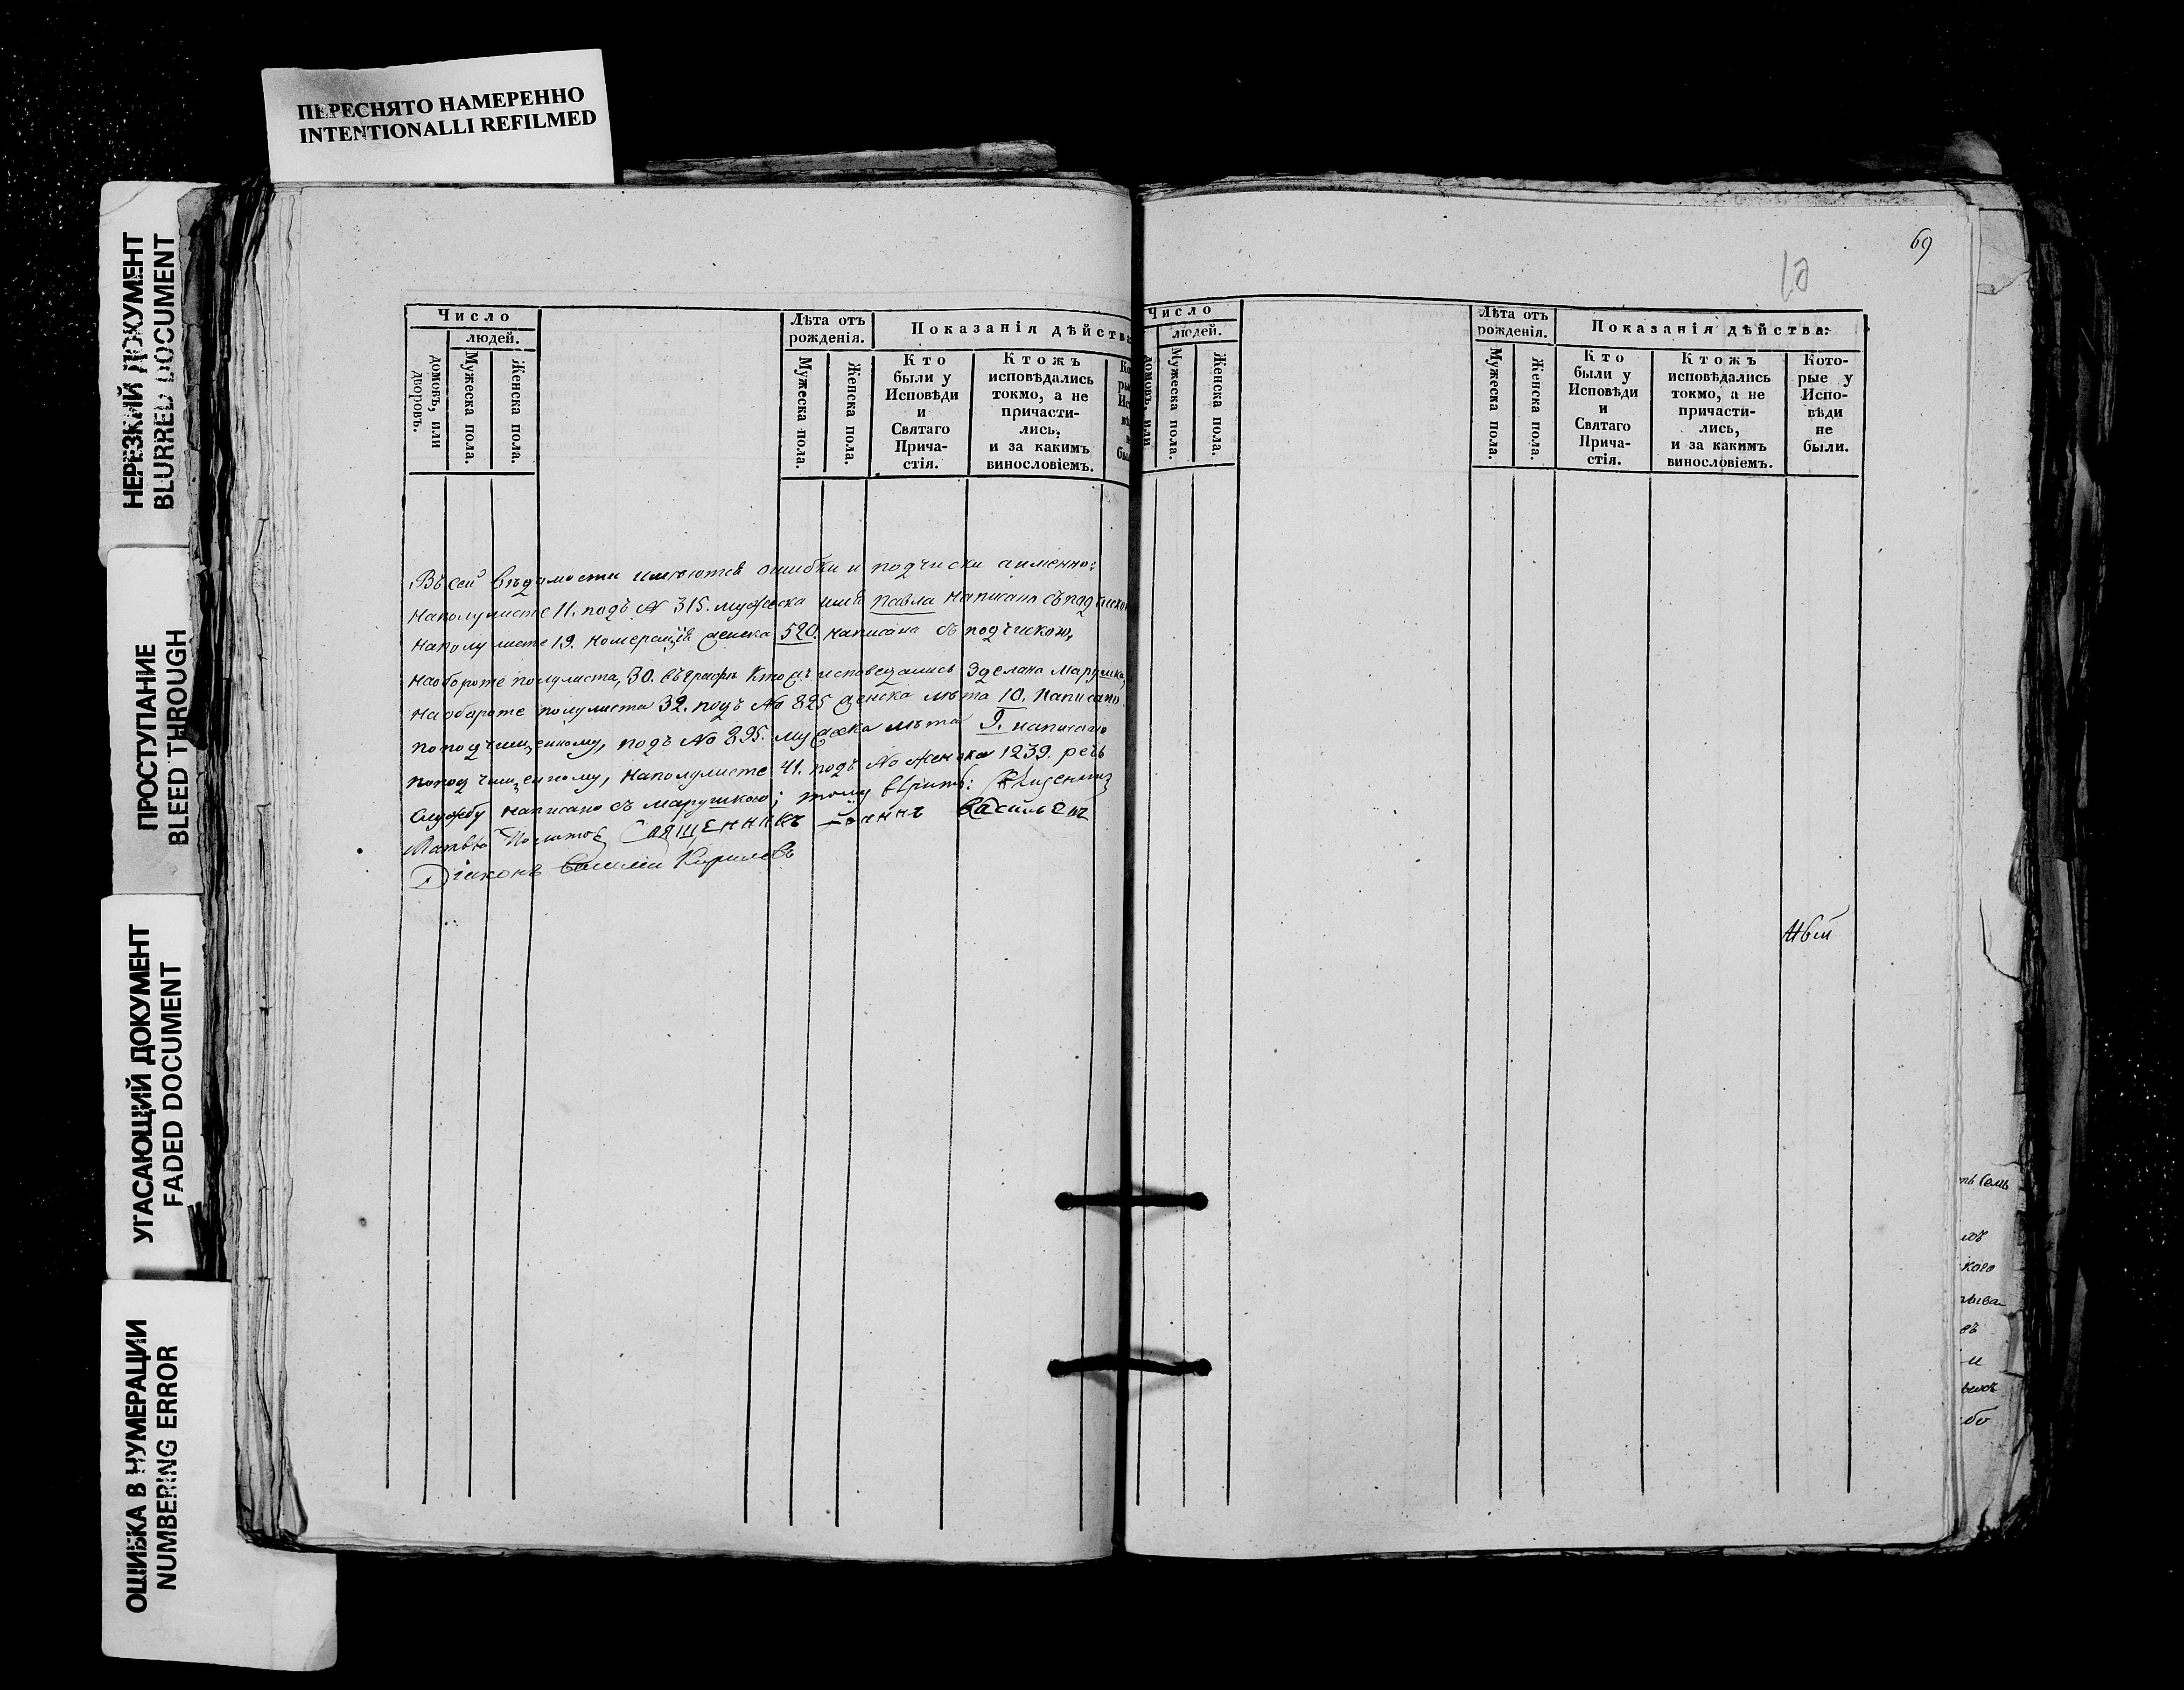 ПЕРЕСНЯТО НАМЕРЕННО
INTENTIONALLI REFILMED
НЕРЕЗКИЙ ДОКУМЕНТ
BLURRED DOCUMENT
ПРОСТУПАНИЕ
BLEED THROUGH
УГАСАЮЩИЙ ДОКУМЕНТ
FADED DOCUMENT
ОШИБКА В НУМЕРАЦИИ
NUMBERING ERROR
Число
людей.
домовъ, или дворовъ.
Мужеска пола.
Женска пола.
Лѣта отъ
рожденія.
Мужеска пола.
Женска пола.
Показанія дѣйства
Кто
были у
Исповѣди
и
Святаго
Прича-
стія.
Ктожъ
исповѣдались
токмо, а не
причасти-
лись,
и за какимъ
винословіемъ.
Въ сей вѣдомости имеются ошибки и подчиски аименно:
наполулисте 11. подъ № 315. мужеска имя павла написано съ подчискою
наполулисте 19. номерація женска 520. написана съ подчискою,
наобороте полулиста, 30. въ графѣ Ктожъ исповедались зделана марушка,
наобороте полулиста 32. подъ № 825 женска лѣта 10. написано
поподчищенному, подъ № 895. мужеска лѣта 9. написано
поподчищенному, наполулисте 41. подъ № женска 1239. речь
службу написано съ марушкою;
Священникъ Іоаннъ Васильевъ
Діаконъ Василій Кириловъ
69
10
Число
людей.
домовъ, или
Мужеска пола.
Женска пола.
Лѣта отъ
рожденія.
Мужеска пола.
Женска пола.
Показанія дѣйства:
Кто
были у
Исповѣди
и
Святаго
Прича-
стія.
Ктожъ
исповѣдались
токмо, а не
причасти-
лись,
и за какимъ
винословіемъ.
Кото-
рые у
Испо-
вѣди
не
были.